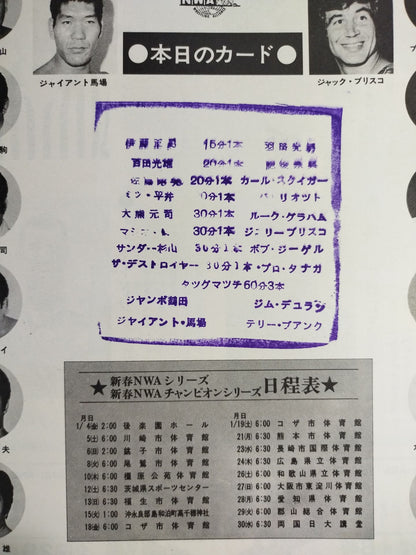 NWA
ジャイアント馬場
ジャック・ブリスコ
●本日のカード●
伊藤正男 15分1本 羽田光男
百田光雄 20分1本 肥後宗典
佐藤昭雄 20分1本 カール・スタイガー
ミツ・平井 0分1本 リオット
大熊元司 30分1本 ルーク・グラハム
マシオ 30分1本 ジェリーブリスコ
サンダー杉山 30分1本 ボブ・ジーゲル
ザ・デストロイヤー 30分1本・プロ・タナカ
タッグマッチ60分3本
ジャンボ鶴田 ジム・デュラン
ジャイアント・馬場 テリー・ファンク
★新春NWAシリーズ
新春NWAチャンピオンシリーズ日程表★
月日
1/4(金)2:00 後楽園ホール
5(土)6:00 川崎市体育館
6(日)2:00 銚子市体育館
8(火)6:00 尾鷲市体育館
10(木)6:00 橿原公苑体育館
12(土)6:30 茨城県スポーツセンター
13(日)6:00 福生市体育館
15(火)1:00 沖永良部島和泊町高千穂神社
18(金)6:00 コザ市体育館
月日
1/19(土)6:00 コザ市体育館
21(月)6:30 熊本市体育館
23(水)6:30 長崎市国際体育館
24(木)6:30 広島県立体育館
26(土)6:00 和歌山県立体育館
27(日)6:00 大阪市東淀川体育館
28(月)6:30 愛知県体育館
29(火)6:00 郡山総合体育館
30(水)6:30 両国日大講堂